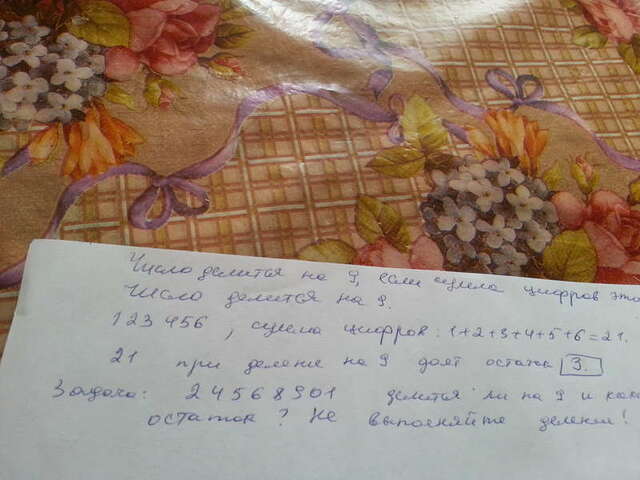 Число делится на 9, если сумма цифров это
Число делится на 9.
123456, сумма цифров: 1+2+3+4+5+6=21.
21 при делене на 9 дает остаток 3.
Задача: 24568901 делится ли на 9 и как
остаток? Не выполняйте деления!